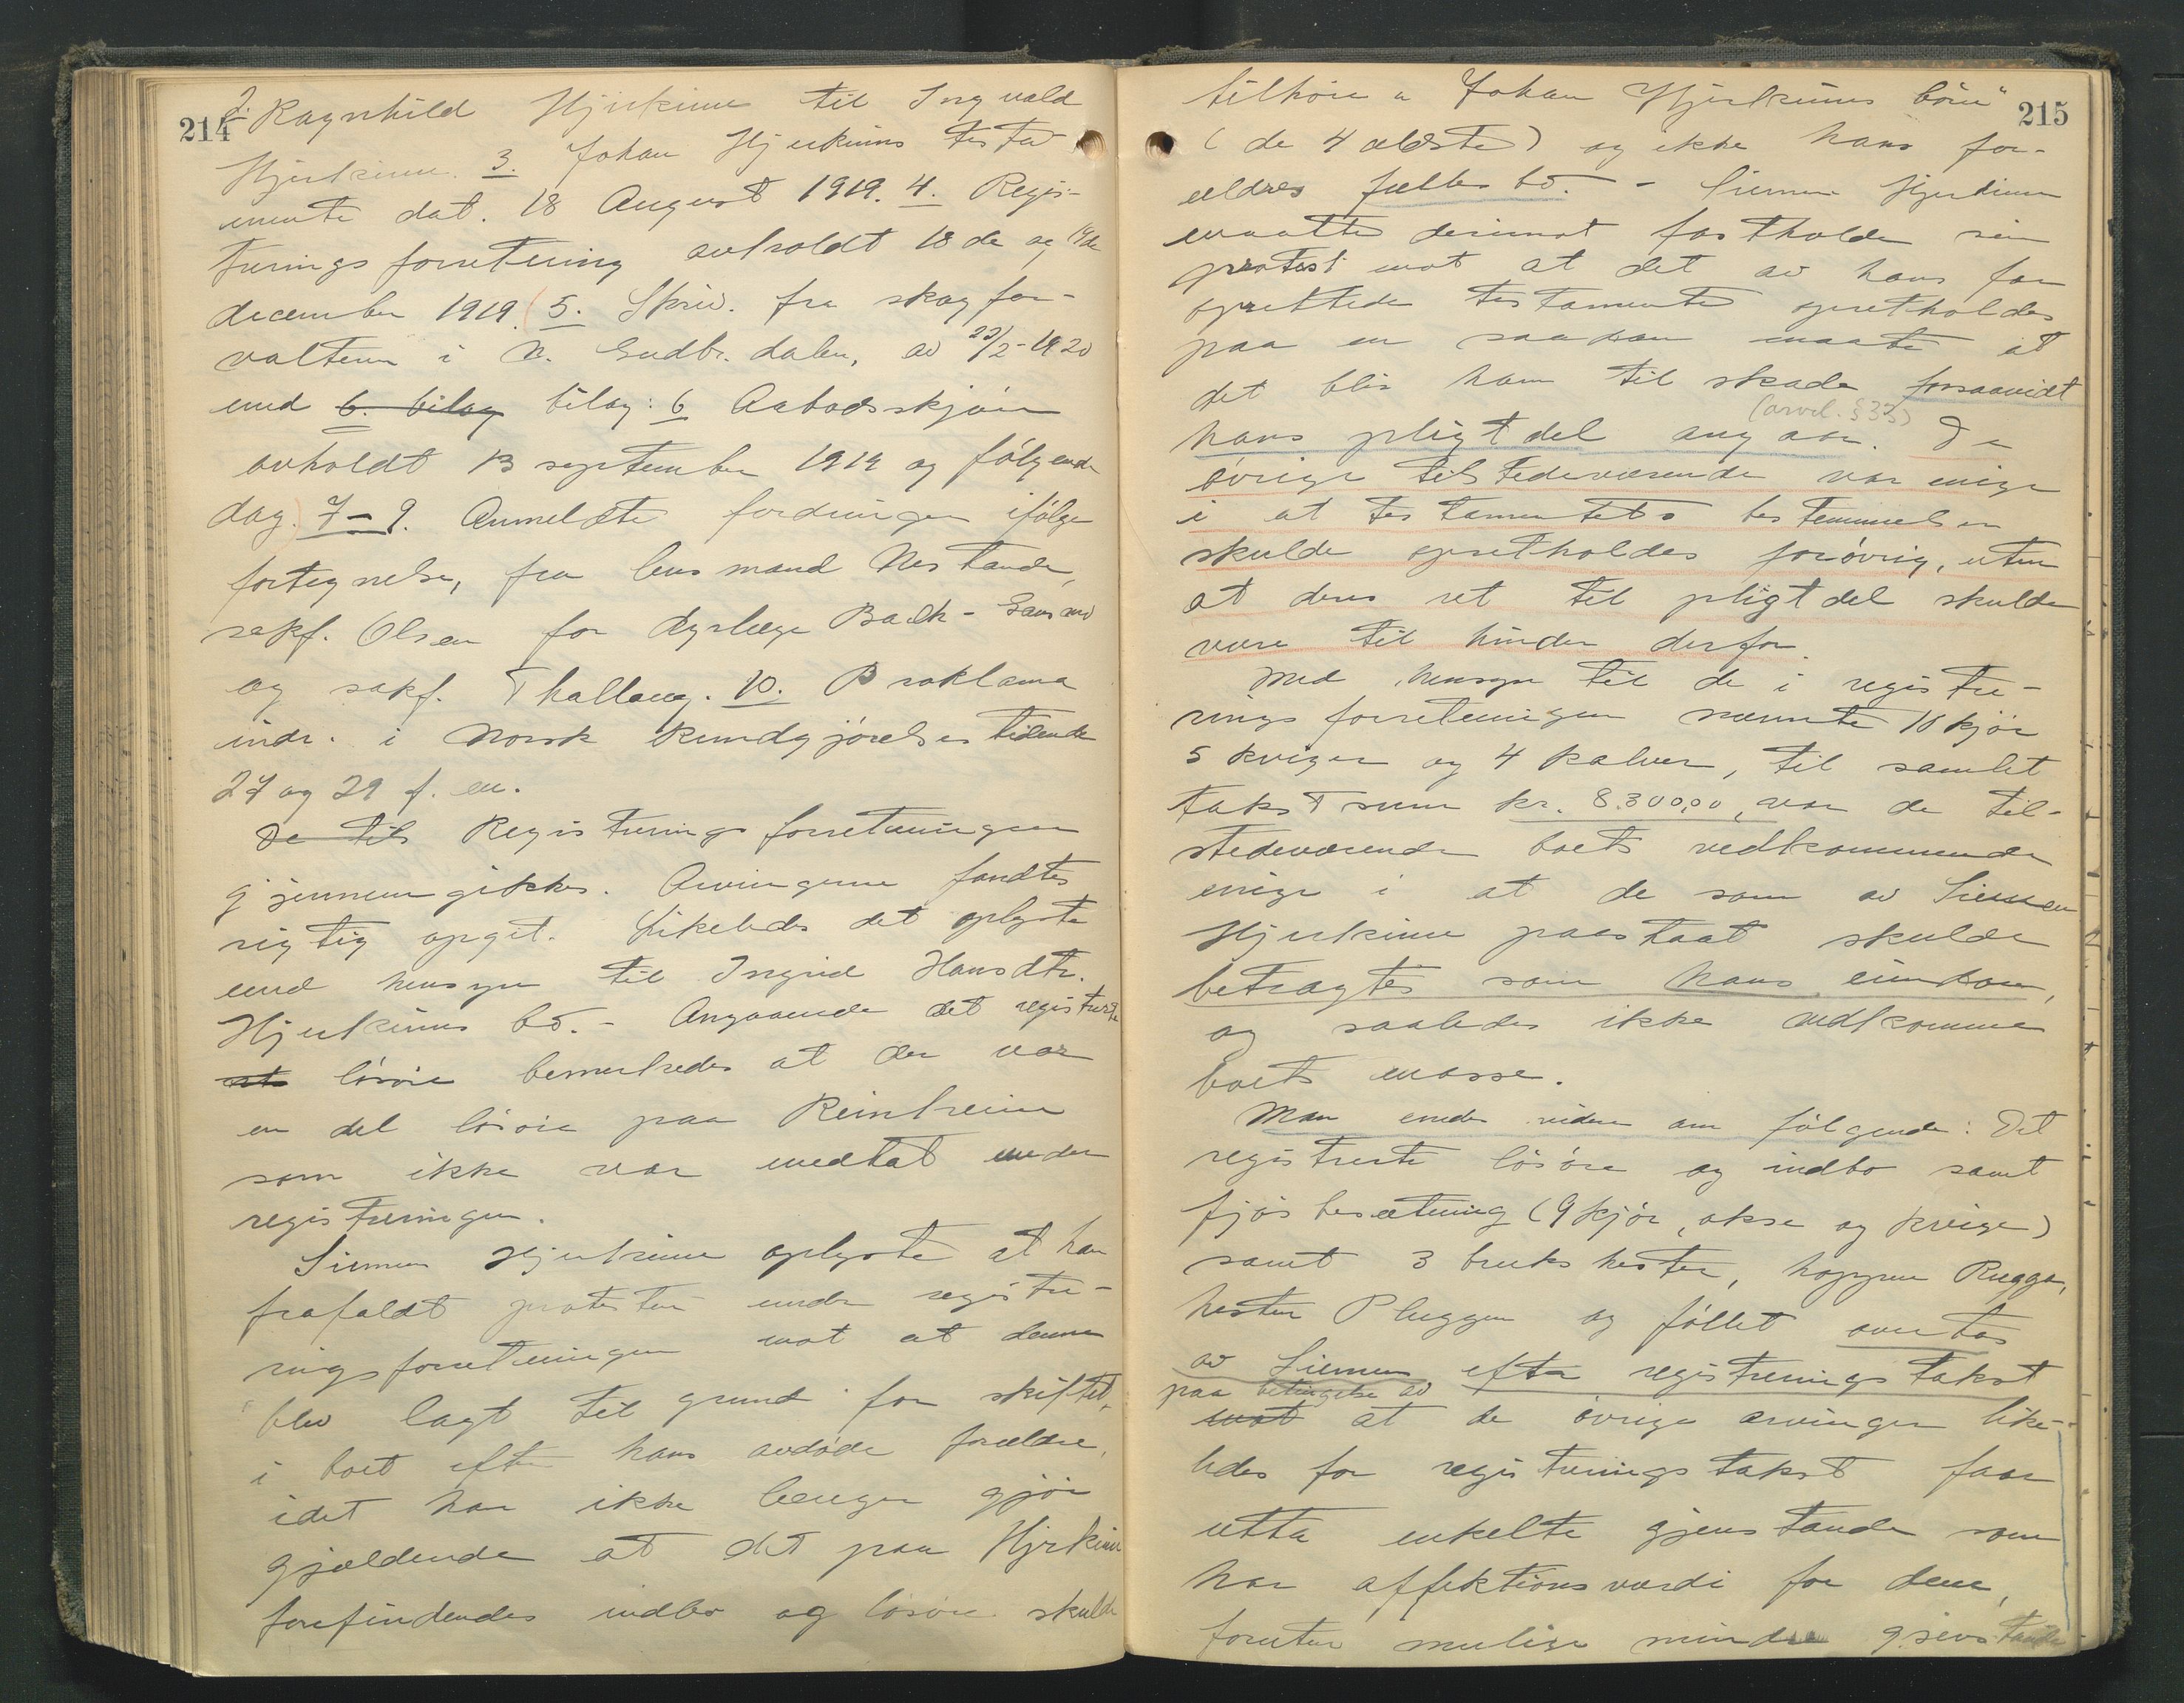 214
2. Ragnhild Hjerkinn til Ingvald
Hjerkinn. 3. Johan Hjerkinns testa-
mente dat. 18 August 1919. 4. Regis-
treringsforretning avholdt 18de og 19de
december 1919. 5. Skriv. fra skogfor-
valteren i N. Gudbr. dalen, av 23/2-1920
med 6. bilag bilag: 6 Aabodsskjøn
avholdt 13 september 1919 og følgende
dag. 7-9. Anmeldte fordringer ifølge
fortegnelse, fra lensmand Nestande,
sakf. Olsen for dyrlæge Bach-Gansmo
og sakf. Thallaug. 10. Proklama
indr. i Norsk Kundgjørelsestidende
27 og 29 f. m.
De tils Registreringsforretningen
gjennemgikkes. Arvingerne fandtes
rigtig opgit. Likeledes det oplyste
med hensyn til Ingrid Hansdtr.
Hjerkinns bo. - Angaaende det registrerte
at løsøre bemerkedes at der var
en del løsøre paa Reinheim
som ikke var medtat under
registreringen.
Simen Hjerkinn oplyste at han
frafaldt protesten under registre-
ringsforretningen mot at denne
blev lagt til grund for skiftet,
i boet efter hans avdøde forældre,
idet han ikke længer gjør
gjældende at det paa Hjerkinn
forefindendes indbo og løsøre skulde
215
tilhøre "Johan Hjerkinns børn"
(de 4 ældste) og ikke hans for-
ældres fælles bo. - Simen Hjerkinn
maatte derimot fastholde sin
protest mot at det av hans far
oprettede testamente opretholdes
paa en saadan maate at
det blir ham til skade forsaavidt
(arvel. § 33)
hans pligtdel angaar. De
øvrige tilstedeværende var enige
i at testamentets bestemmelser
skulde opretholdes forøvrig, uten
at deres ret til pligtdel skulde
være til hinder derfor.
Med hensyn til de i registre-
ringsforretningen nævnte 10 kjør
5 kviger og 4 kalver, til samlet
takstsum kr. 8300,00, var de til-
stedeværende boets vedkommende
enige i at de som av Simen
Hjerkinn paastaat skulde
betragtes som hans eiendom,
og saaledes ikke vedkomme
boets masse.
Man enedes videre om følgende: Det
registrerte løsøre og indbo samt
fjøsbesætning (9 kjør, okse og kvige)
samt 3 brukshester, hoppen Rugga,
hesten Pluggen og føllet overtas
av Simen efter registreringstakst
paa betingelse av
mot at de øvrige arvinger like-
ledes for registreringstakst faar
utta enkelte gjenstande som
har affektionsværdi for dem,
foruten mulige mindre gjenstande